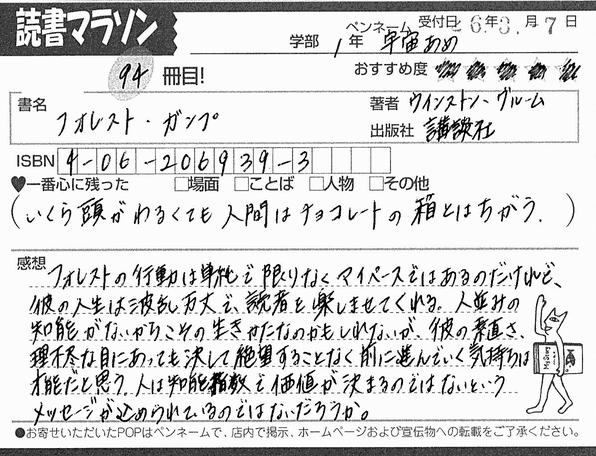 読書マラソン
学部 1年 ペンネーム 宇宙あめ 受付日 26年3月7日
94 冊目!
おすすめ度
書名 フォレスト・ガンプ
著者 ウインストン・グルーム
出版社 講談社
ISBN 4-06-206939-3
♥一番心に残った □場面 □ことば □人物 □その他
(いくら頭がわるくても人間はチョコレートの箱とはちがう.)
感想
フォレストの行動は単純で限りなくマイペースではあるのだけれど、
彼の人生は波乱万丈で、読者を楽しませてくれる。人並みの
知能がないからこその生きかたなのかもしれないが、彼の素直さ、
理不尽な目にあっても決して絶望することなく前に進んでいく気持ちは
才能だと思う。人は知能指数で価値が決まるのではないという
メッセージが込められているのではないだろうか。
●お寄せいただいたPOPはペンネームで、店内で掲示、ホームページおよび宣伝物への転載をご了承ください。